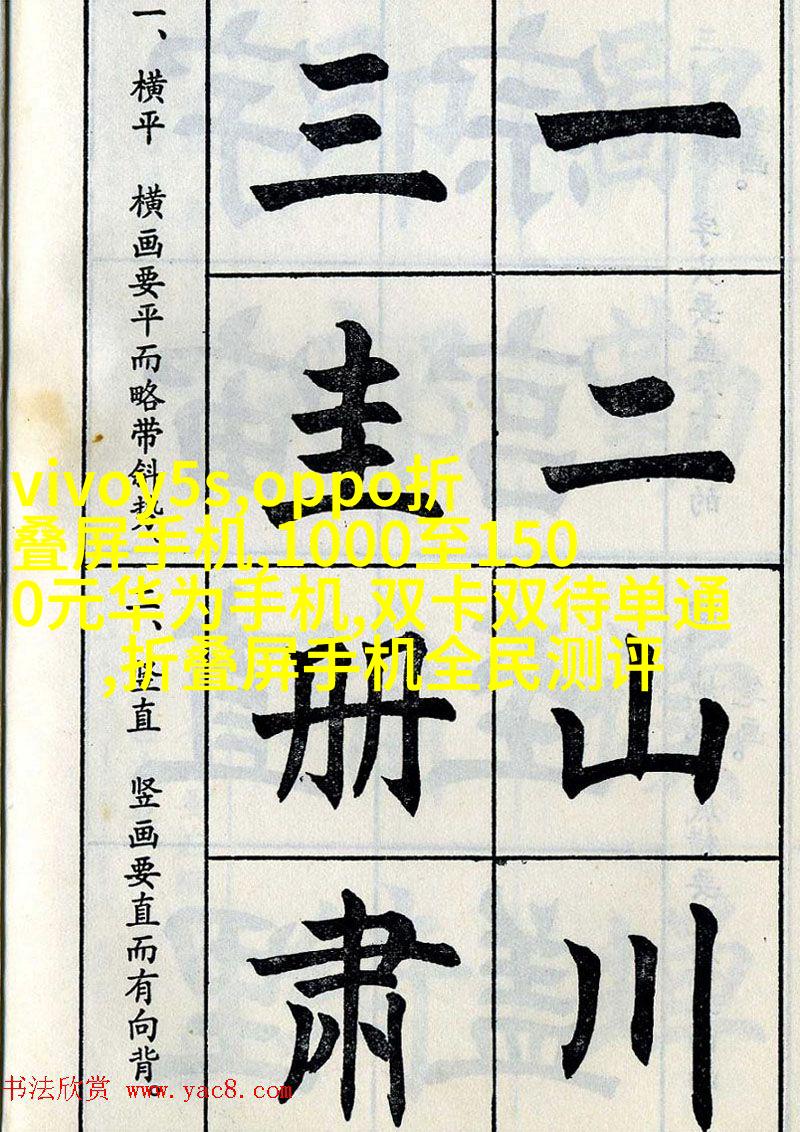 一
二
山
川
三
圭
册
肃
一、横平 横画要平而略带斜势
二、竖直 竖画要直而有向背。
vivoy5s,oppo折
叠屏手机,1000至150
0元华为手机,双卡双待单通
,折叠屏手机全民测评
书法欣赏 www.yac8.com